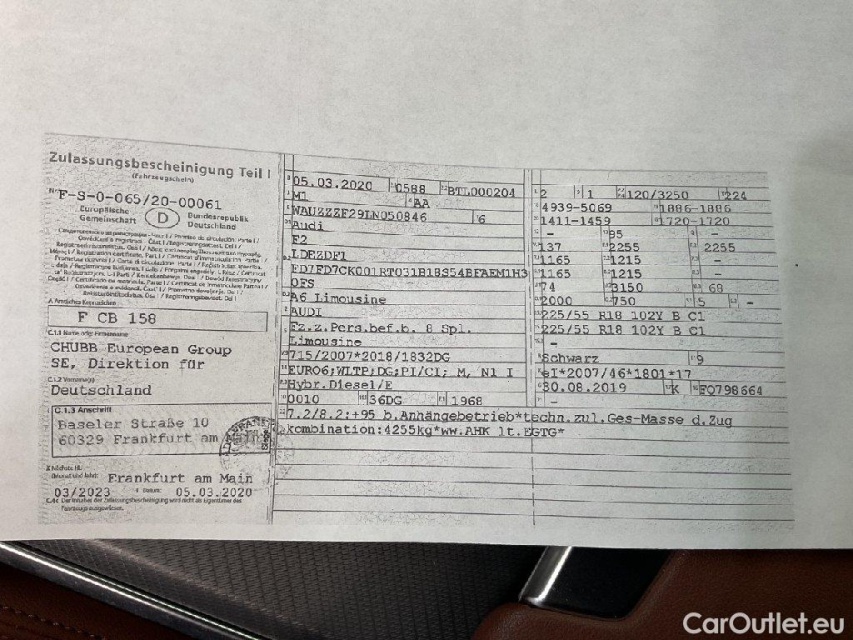 Zulassungsbescheinigung Teil I
(Fahrzeugschein)
Nr. F-S-0-065/20-00061
Europäische Gemeinschaft
D
Bundesrepublik Deutschland
A Amtliches Kennzeichen
F CB 158
C.1.1 Name oder Firmenname
CHUBB European Group
SE, Direktion für
C.1.2 Vorname(n)
Deutschland
C.1.3 Anschrift
Baseler Straße 10
60329 Frankfurt am Main
Frankfurt am Main
03/2023
05.03.2020
05.03.2020 0588 BTL000204
M1 AA
WAUZZZF29LN050846 6
Audi
F2
LDEZDF1
FD7FD7CK001RT031B18S54BFAEM1H3
OFS
A6 Limousine
AUDI
Fz.z.Pers.bef.b. 8 Spl.
Limousine
715/2007*2018/1832DG
EURO6;WLTP;DG;PI/CI; M, N1 I
Hybr.Diesel/E
0010 36DG 1968
7.2/8.2:+95 b.Anhängebetrieb*techn.zul.Ges-Masse d.Zug
kombination:4255kg*ww.AHK lt.EGTG*
2 1 120/3250 224
4939-5069 1886-1886
1411-1459 1720-1720
- 95 -
137 2255 2255
1165 1215 -
1165 1215 -
74 3150 68
2000 750 5 -
225/55 R18 102Y B C1
225/55 R18 102Y B C1
-
Schwarz 9
e1*2007/46*1801*17
30.08.2019 K FQ798664
-
CarOutlet.eu